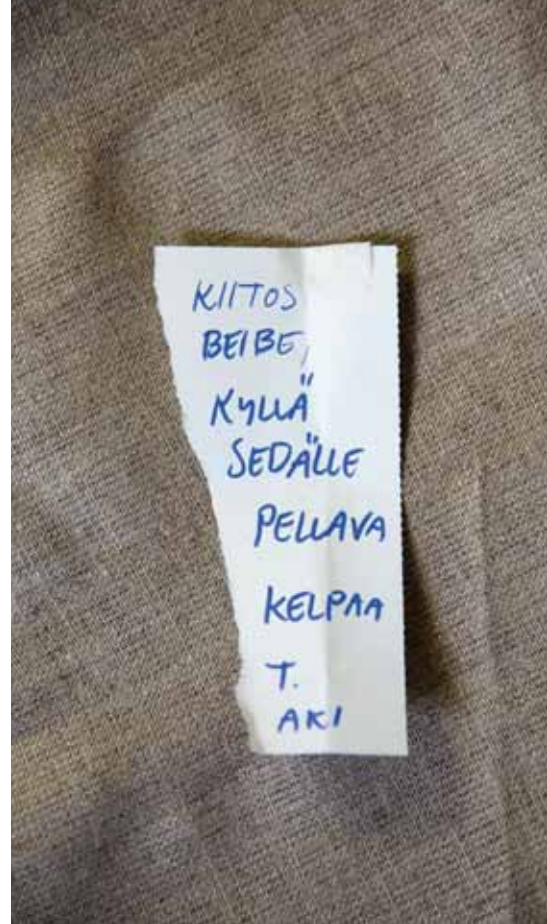 KIITOS
BEIBE,
KYLLÄ
SEDÄLLE
PELLAVA
KELPAA
T.
AKI